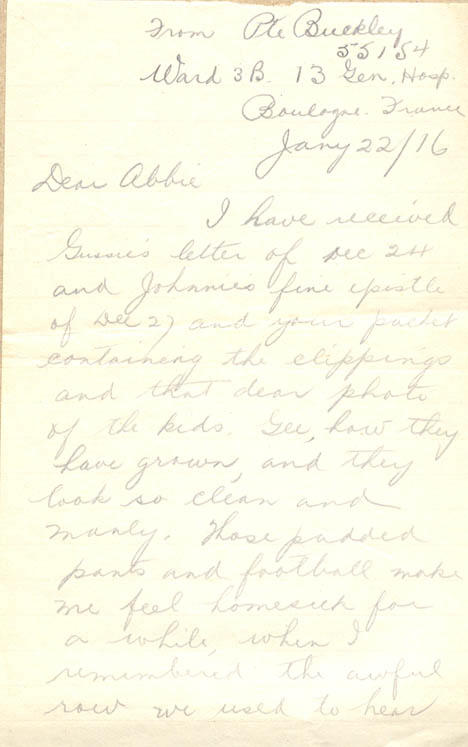 From Pte Buckley
55154
Ward 3B. 13 Gen. Hosp.
Boulogne. France
Jany 22/16
Dear Abbie
I have received
Gussie's letter of Dec 24
and Johnnie's fine epistle
of Dec 27 and your packet
containing the clippings
and that dear photo
of the kids. Gee, how they
have grown, and they
look so clean and
manly. Those padded
pants and football make
me feel homesick for
a while, when I
remembered the awful
row we used to hear